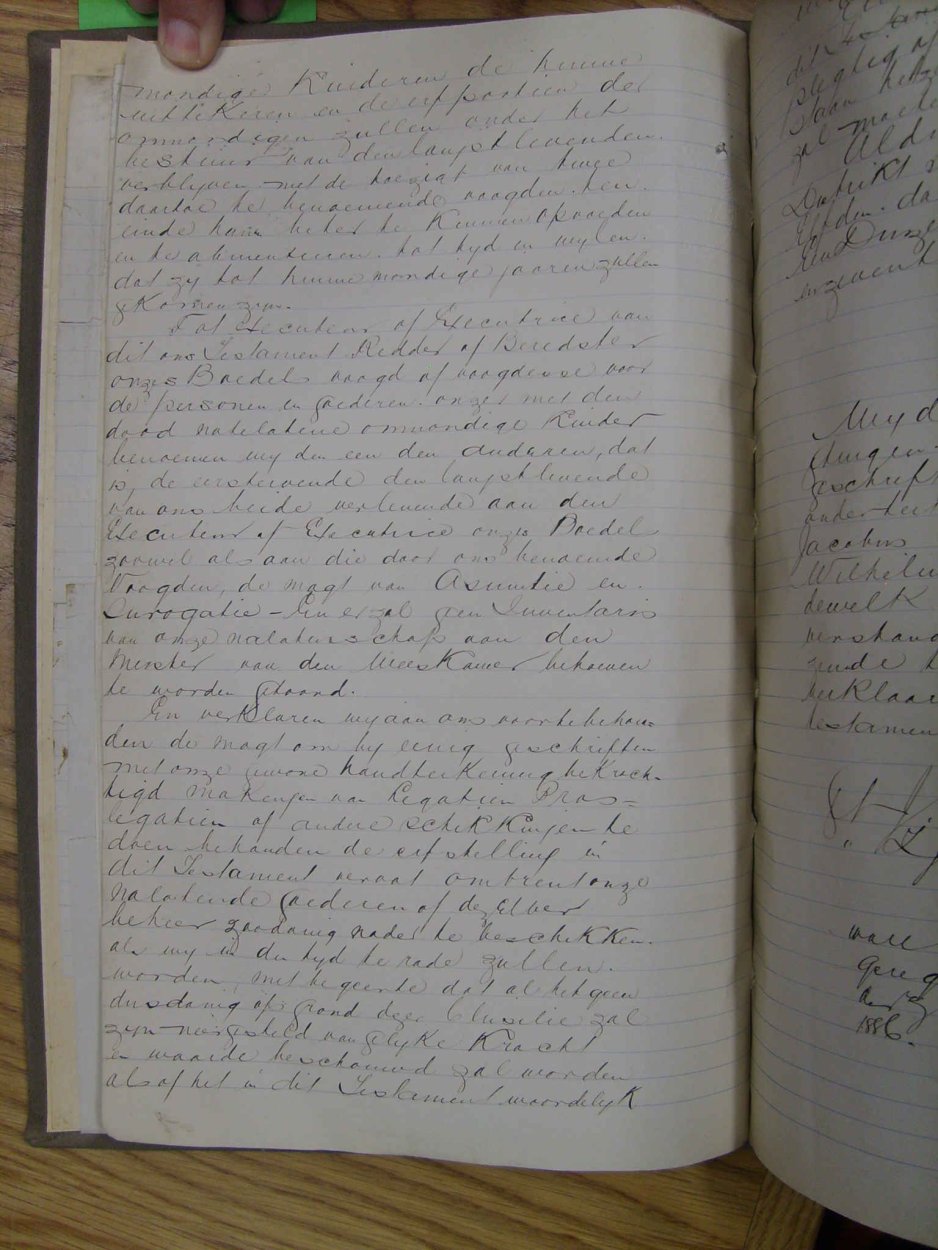 mondige Kinderen de hunne
uit te Keren en de erfportien der
onmondigen zullen onder het
bestuur van den langstlevenden
verblyven met de toezigt van twee
daartoe te benoemende voogden. ten
einde hun beter te Kunnen opvoeden
en te alimenteren. tot tyd en wylen.
dat zy tot hunne mondige jaaren zullen
gekomen zyn.
Tot Executeur of Executrice van
dit ons Testament Redder of Beredster
onzes Boedels voogd of voogdesse voor
de personen en goederen. onzer met den
dood natelatene onmondige Kinder
benoemen wy den een den anderen, dat
is, de eerstervende den langstlevende
van ons beide verleenende aan den
Executeur of Executrice onzes Boedel
zoowel als aan die door ons benoemde
Voogden, de magt van Asumtie en.
Surogatie – En er zal geen Inventaris
van onze nalatenschap aan den
Meester van den Weeskamer behoeven
te worden getoond.
En verklaren wy aan ons voor te behou-
den de magt om by eenig geschriften
met onze gewone handteekening bekrach-
tigd makingen van Legatien Prae=
legatien of andere schikkingen te
doen behouden de erfstelling in
dit Testament vervat omtrent onze
nalatende goederen of dezelver
beheer zoodanig nader te beschikken.
als wy in der tyd te rade zullen.
worden, met begeerte dat al hetgeen
dusdanig op grond dezer Clusilie zal
zyn neergesteld van gelyke Kracht
en waarde beschouwd zal worden
als of het in dit Testament woordelyk
Aldu
Distrikt
Eerden. da
Een Duize
en zevent
Myd
geschrift
Jacobus
Wilhelm
dewelk
verstand
verklaar
testamen
1886.